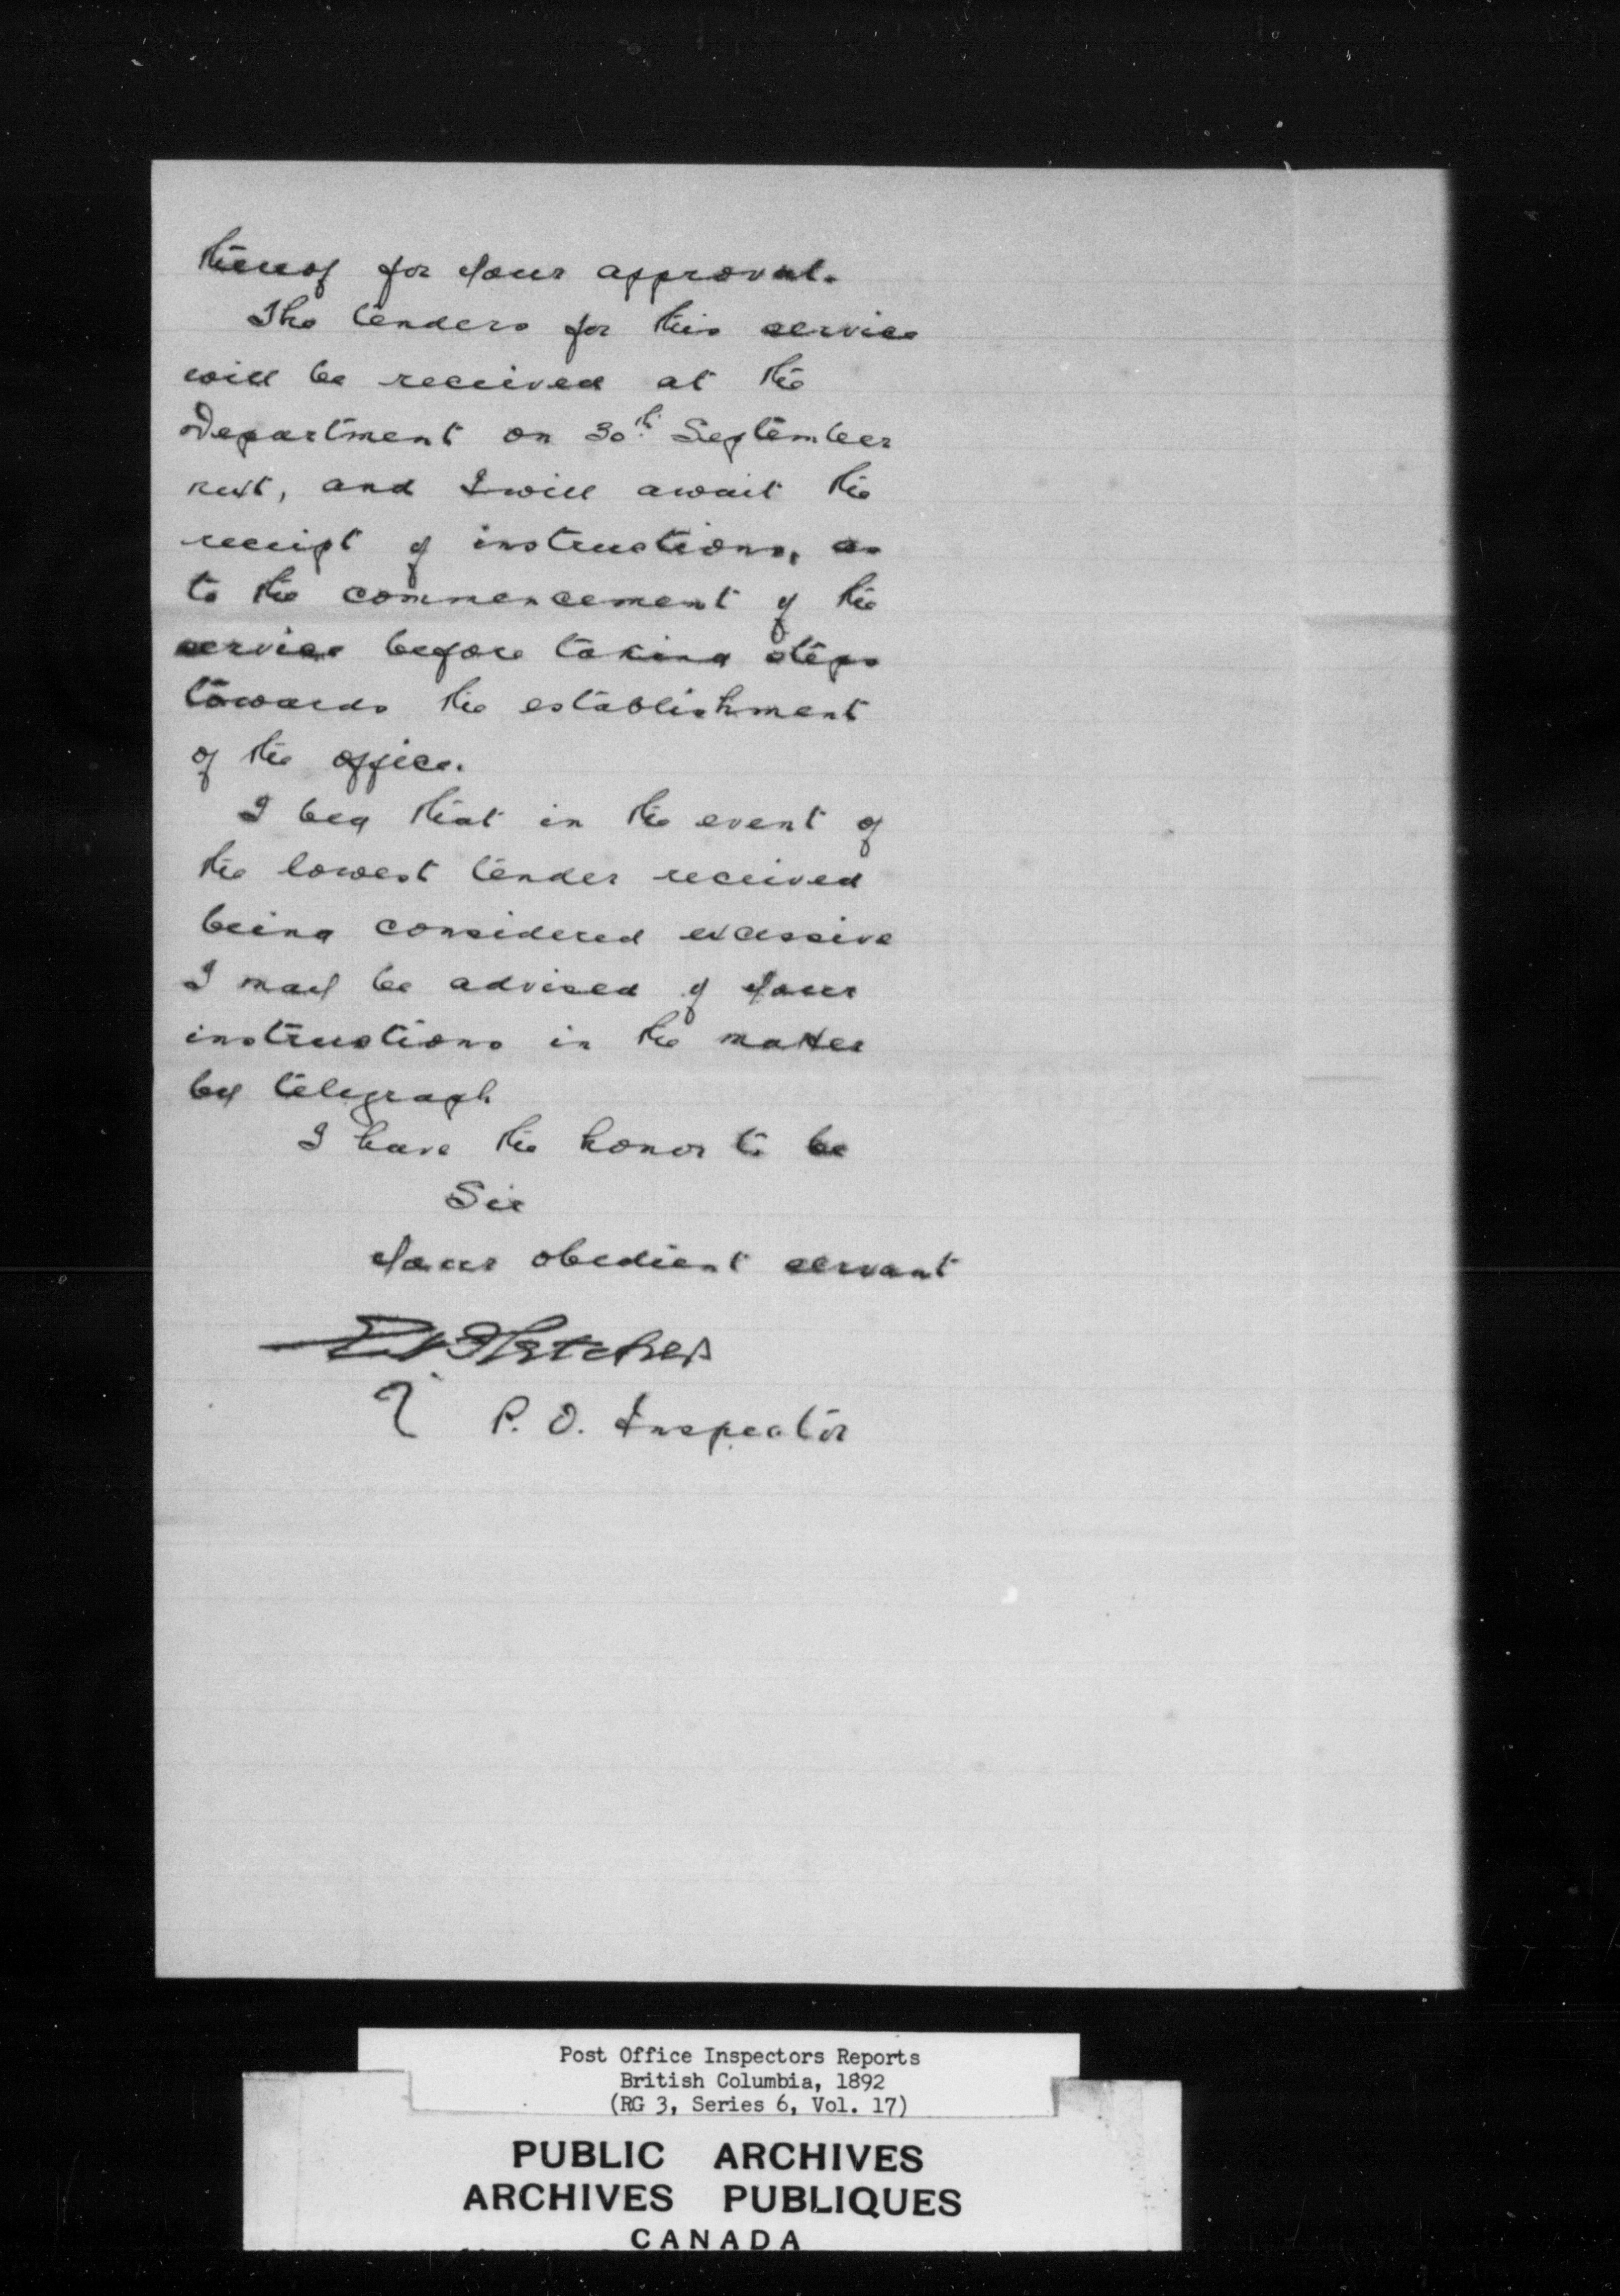 thereof for your approval.
The tenders for this service
will be received at the
Department on 30th September
next, and I will await the
receipt of instructions, as
to the commencement of the
service before taking steps
towards the establishment
of the office.
I beg that in the event of
the lowest tender received
being considered excessive
I may be advised of your
instructions in the matter
by telegraph
I have the honor to be
Sir
Your obedient servant
Fletcher
P. O. Inspector
Post Office Inspectors Reports
British Columbia, 1892
(RG 3, Series 6, Vol. 17)
PUBLIC ARCHIVES
ARCHIVES PUBLIQUES
CANADA